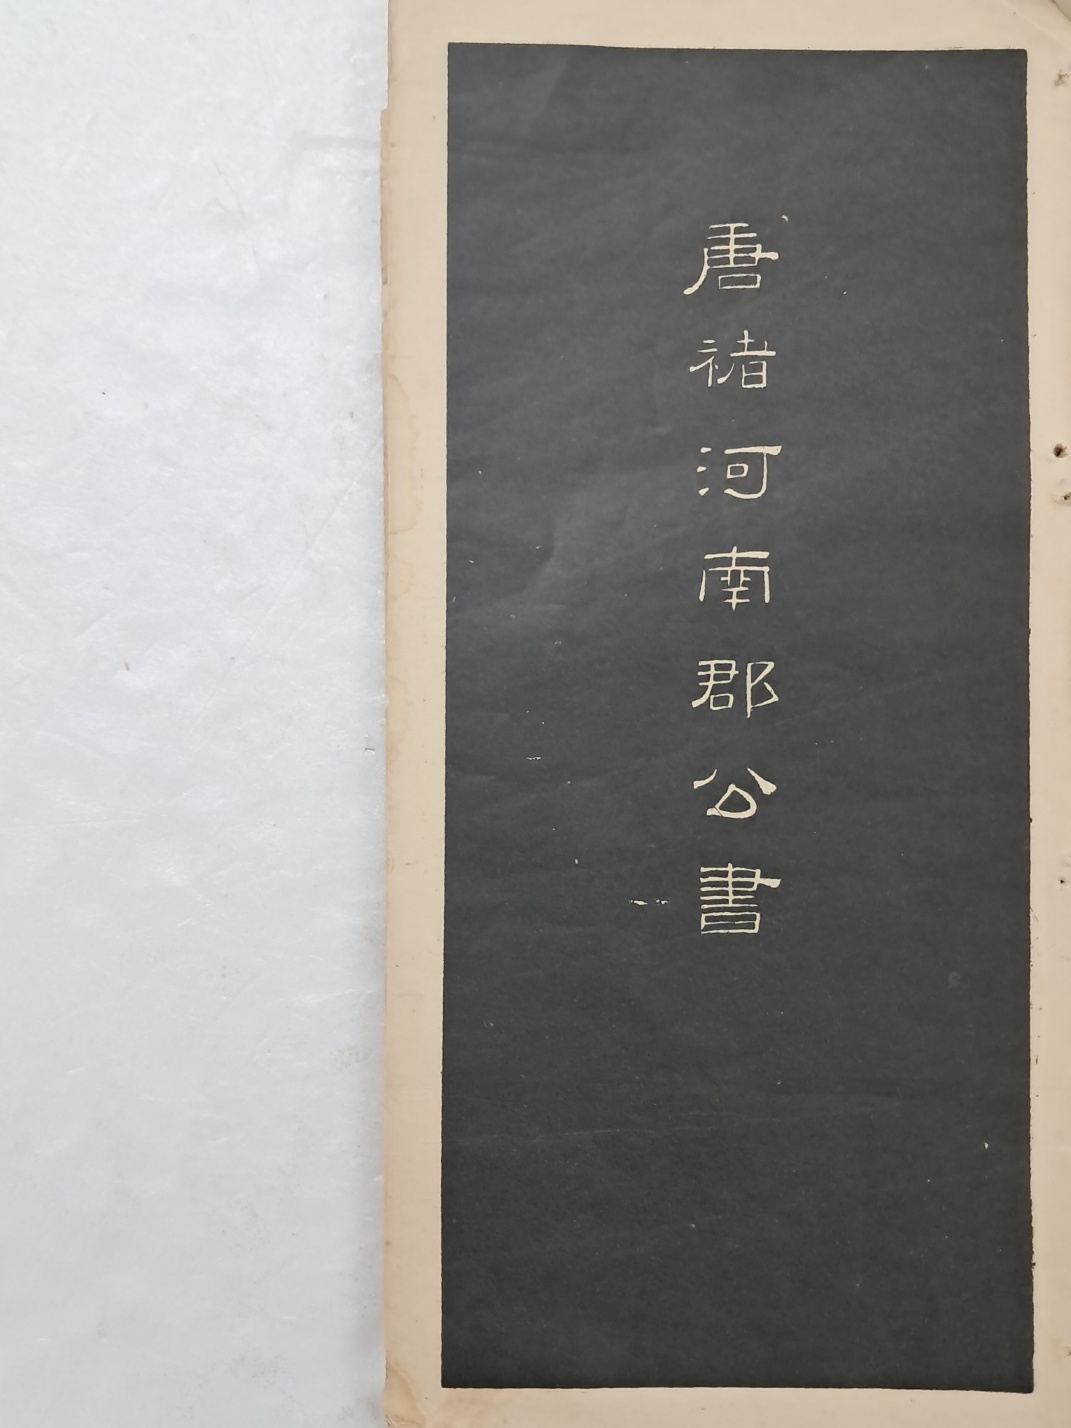 唐褚河南郡公書